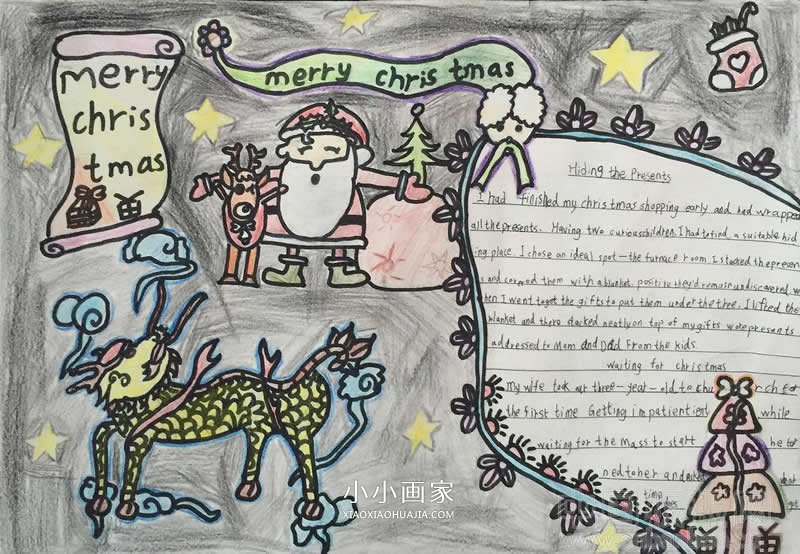 merry
chris
tmas
merry christmas
Hiding the Presents
I had finished my christmas shopping early and had wrapped
all the presents. Having two curious children, I had to find a suitable hid
ing place. I chose an ideal spot—the furnace room. I stacked the presen
and covered them with a blanket, positive they'd remain undiscovered. w
hen I went to get the gifts to put them under the tree, I lifted the
blanket and there stacked neatly on top of my gifts were presents
addressed to Mom and Dad From the kids.
waiting for christmas
my wife took our three-year-old to chu rch for
the first time Getting impatient while
waiting for the mass to start he
ned to her and
time
小小画家
XIAOXIAOHUAJIA.COM